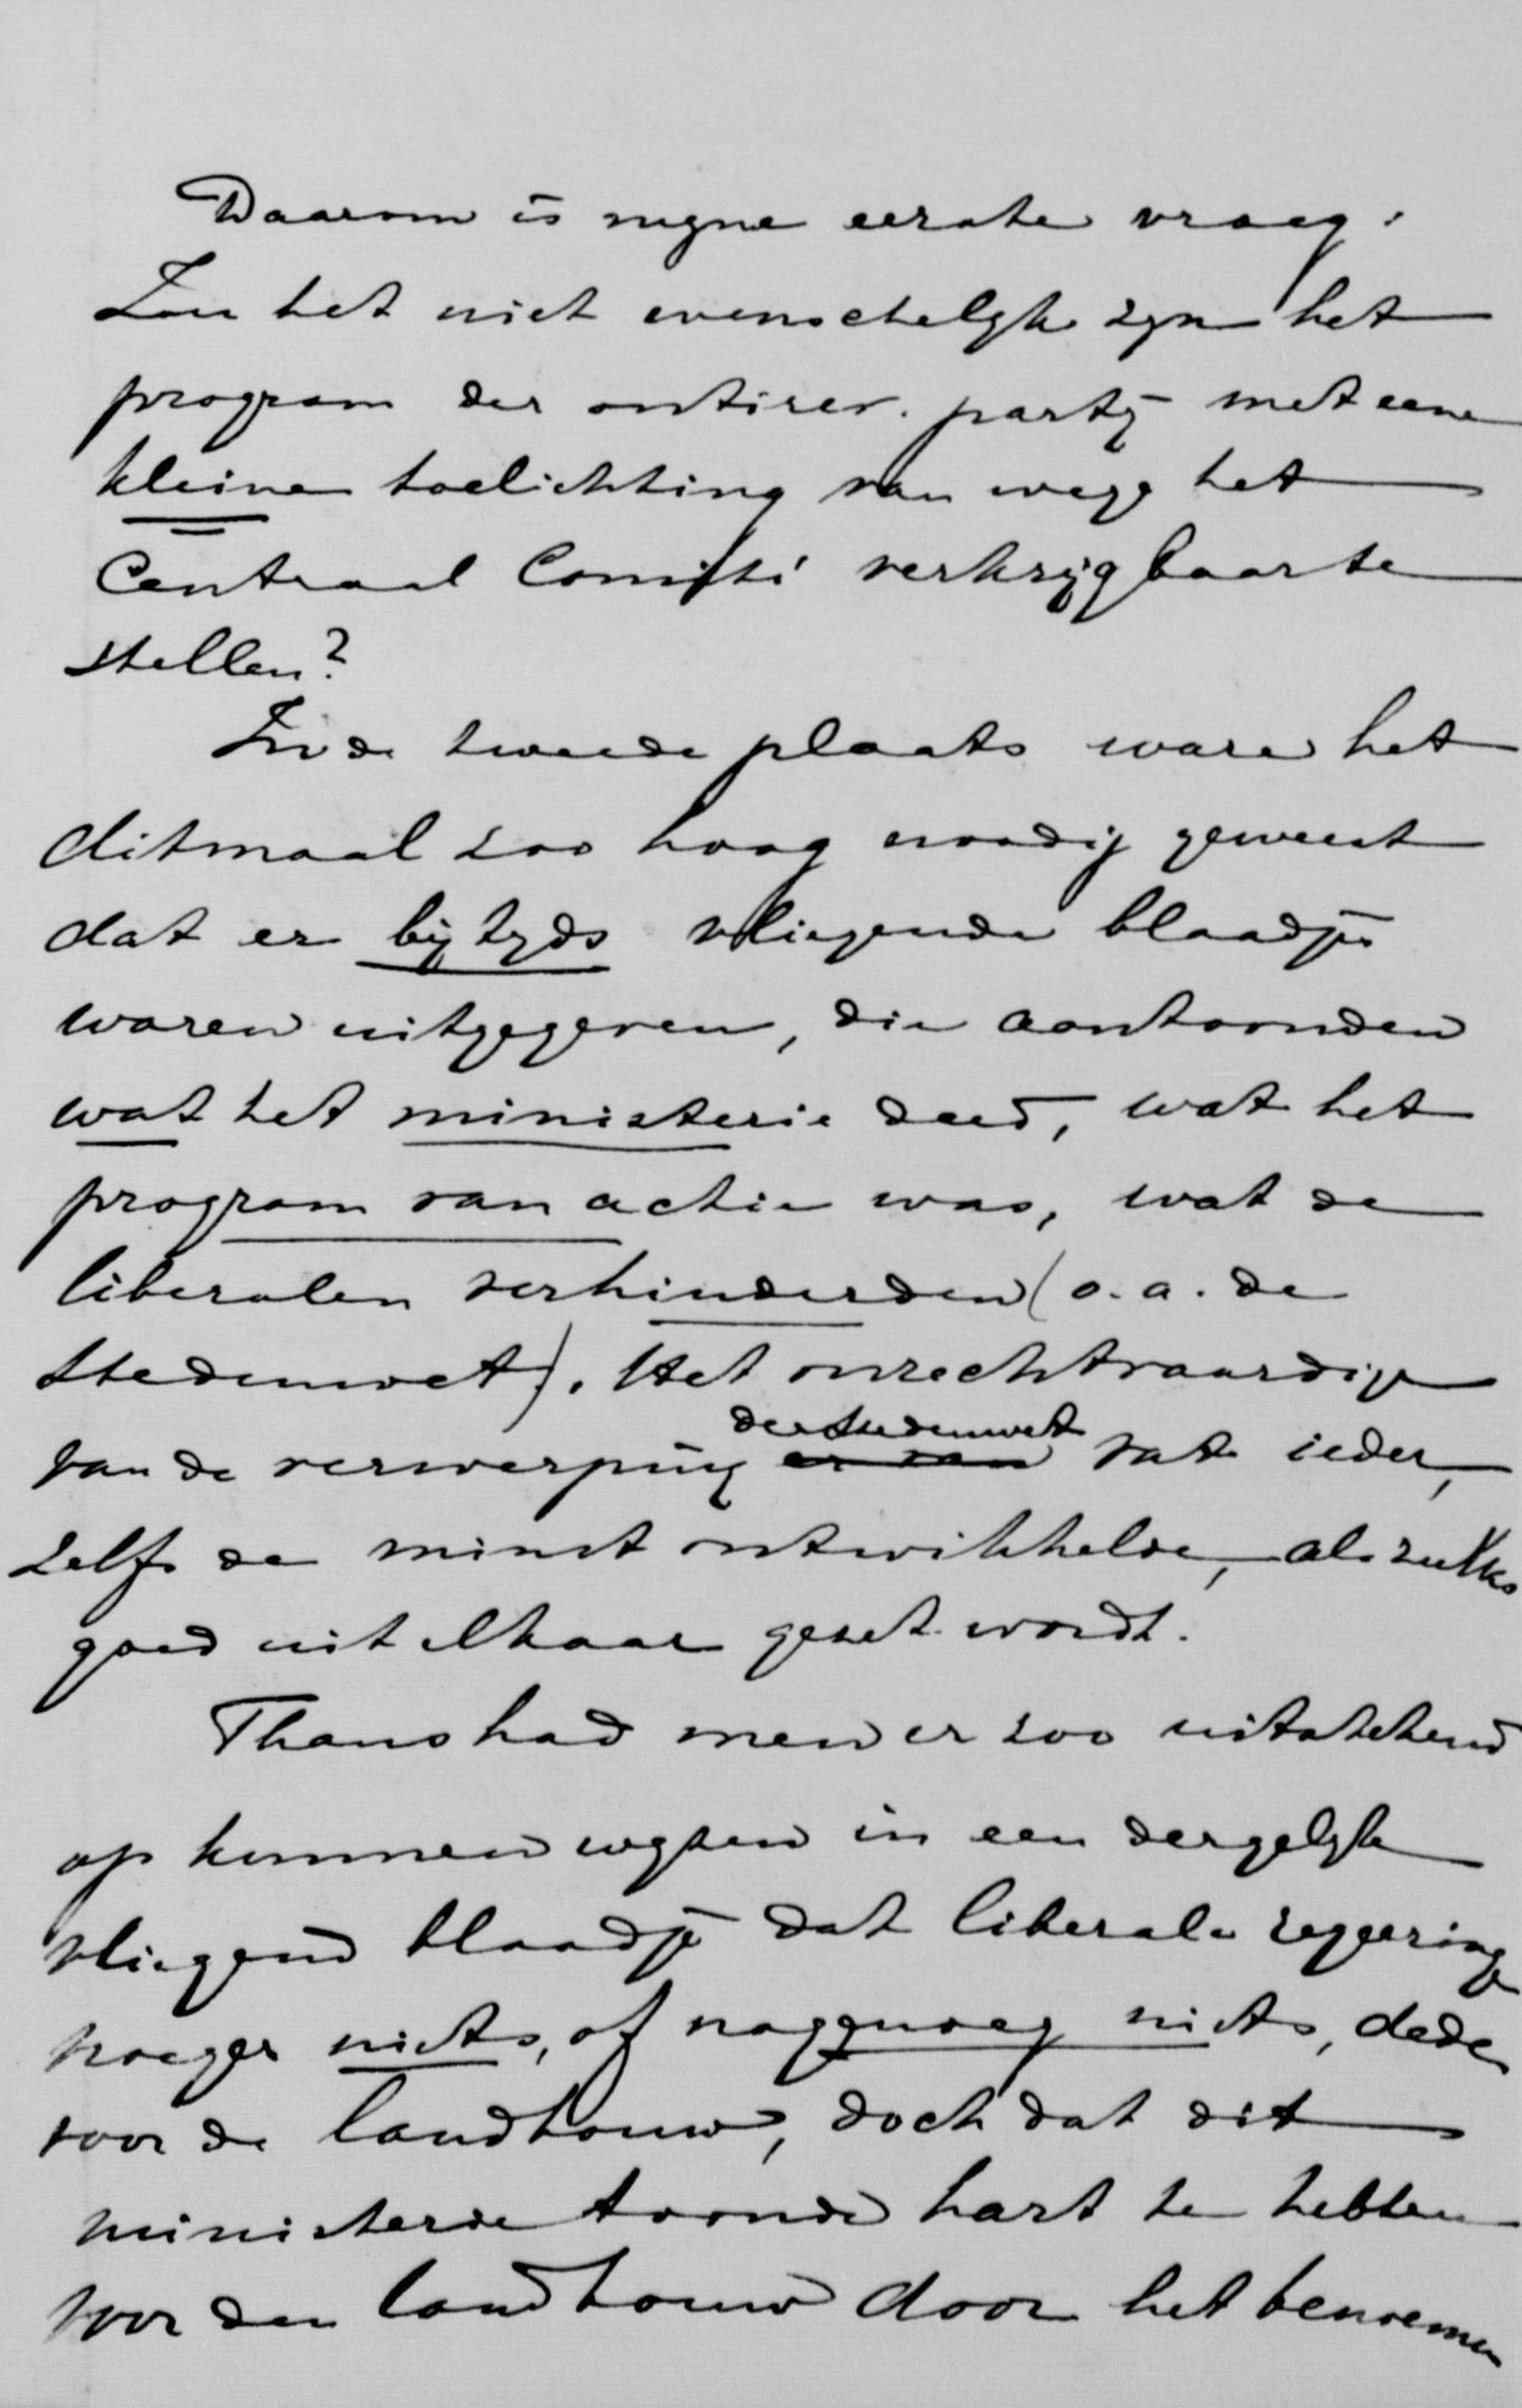 Daarom is mijne eerste vraag:
Zou het niet wenschelijk zijn het
program der antirev. partij met eene
kleine toelichting van wege het
Centraal Comité verkrijgbaar te
stellen?
In de tweede plaats ware het
ditmaal zoo hoog noodig geweest
dat er bijtijds vliegende blaadjes
waren uitgegeven, die aantoonden
wat het ministerie deed, wat het
program van actie was, wat de
liberalen verhinderden (o.a. de
Stedenwet). Het onrechtvaardige
van de verwerping der Stedenwet vat ieder,
zelfs de minst ontwikkelde, als zulks
goed uit elkaar gezet wordt.
Thans had men er zoo uitstekend
op kunnen wijzen in een dergelijk
vliegend blaadje dat liberale regeering
vroeger niets, of nog genoeg niets, deden
voor de landbouw, doch dat dit
ministerie toonde hart te hebben
voor den landbouw door het benoemen